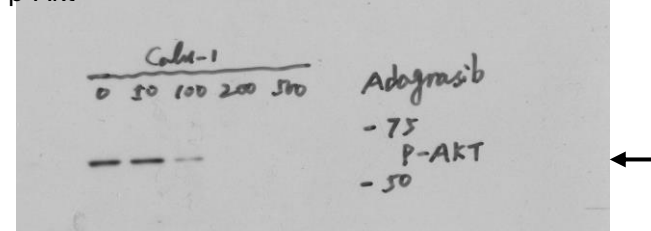 Calu-1
0 50 100 200 500
Adagrasib
- 75
P-AKT
- 50